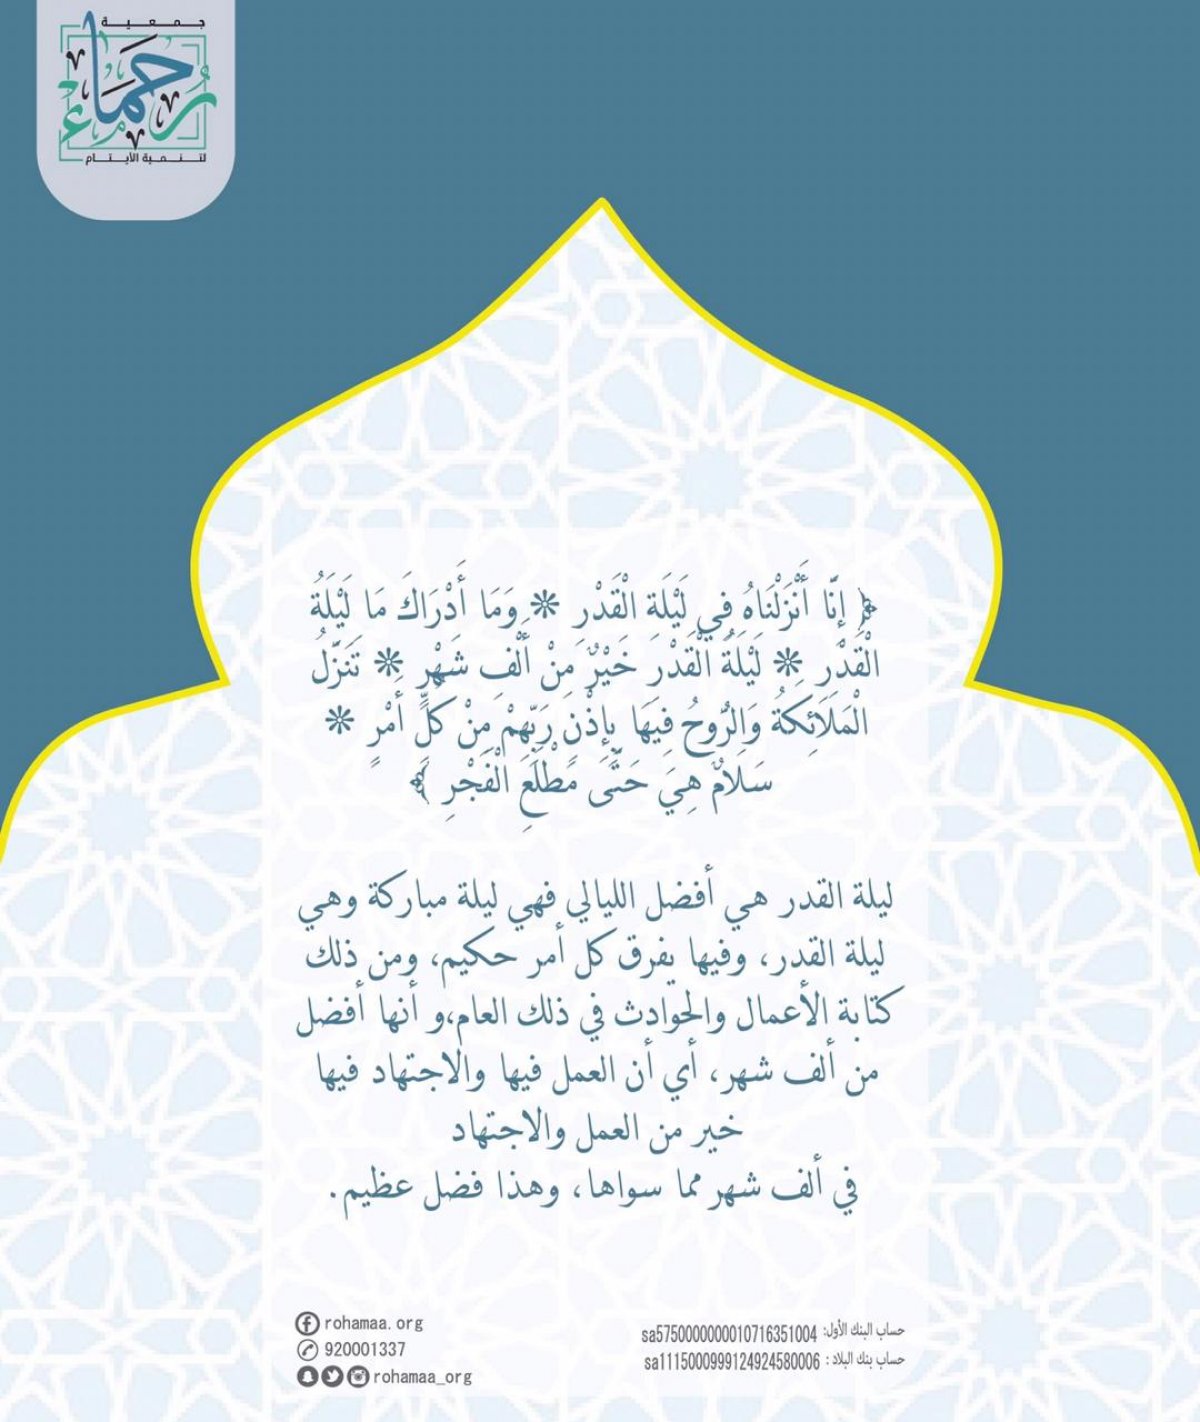 جمعية
رحماء
لتنمية الأيتام
﴿ إِنَّا أَنْزَلْنَاهُ فِي لَيْلَةِ الْقَدْرِ ❊ وَمَا أَدْرَاكَ مَا لَيْلَةُ
الْقَدْرِ ❊ لَيْلَةُ الْقَدْرِ خَيْرٌ مِنْ أَلْفِ شَهْرٍ ❊ تَنَزَّلُ
الْمَلَائِكَةُ وَالرُّوحُ فِيهَا بِإِذْنِ رَبِّهِمْ مِنْ كُلِّ أَمْرٍ ❊
سَلَامٌ هِيَ حَتَّى مَطْلَعِ الْفَجْرِ ﴾
ليلة القدر هي أفضل الليالي فهي ليلة مباركة وهي
ليلة القدر، وفيها يفرق كل أمر حكيم، ومن ذلك
كتابة الأعمال والحوادث في ذلك العام،و أنها أفضل
من ألف شهر، أي أن العمل فيها والاجتهاد فيها
خير من العمل والاجتهاد
في ألف شهر مما سواها، وهذا فضل عظيم.
حساب البنك الأول: sa5750000000010716351004
حساب بنك البلاد : sa1115000999124924580006
rohamaa.org
920001337
rohamaa_org